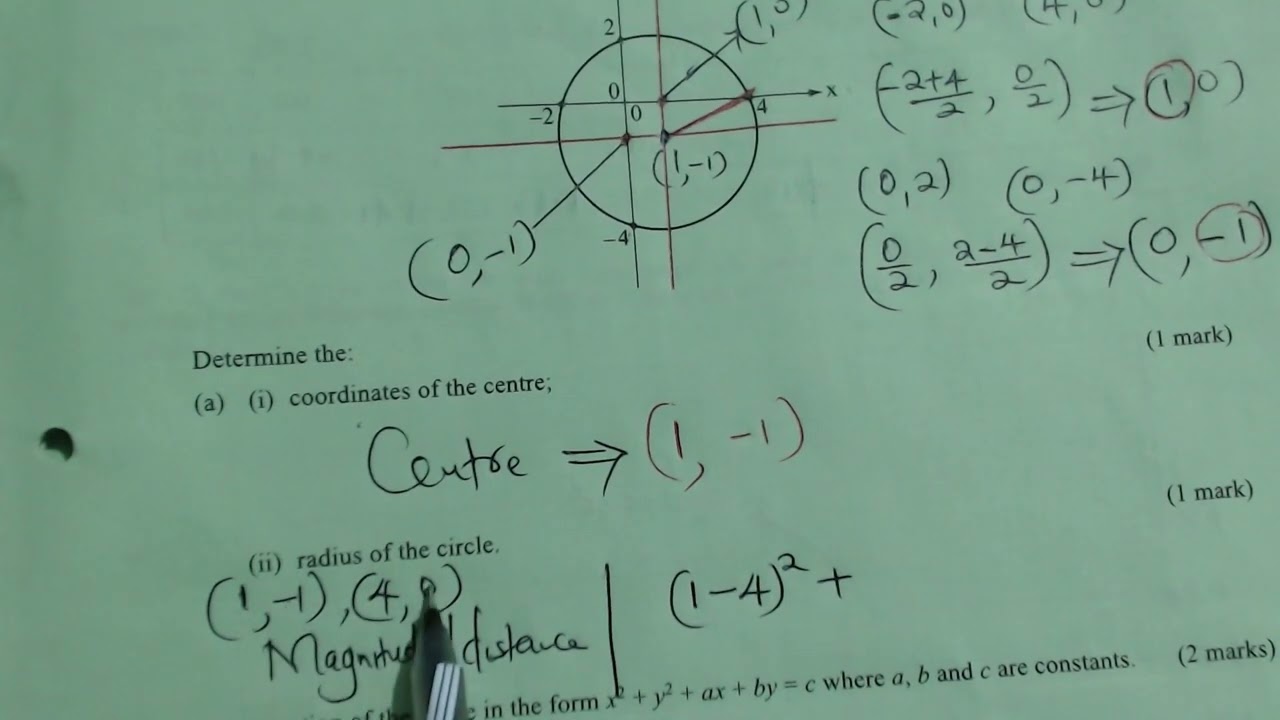 2
(1,0)
(-2,0) (4,0)
0
x
-2
0
4
(-2+4/2, 0/2) ⇒ (1,0)
(1,-1)
(0,2) (0,-4)
-4
(0,-1)
(0/2, 2-4/2) ⇒ (0,-1)
(1 mark)
Determine the:
(a) (i) coordinates of the centre;
Centre ⇒ (1, -1)
(1 mark)
(ii) radius of the circle.
(1,-1),(4,0)
(1-4)² +
distance
(2 marks)
in the form x² + y² + ax + by = c where a, b and c are constants.